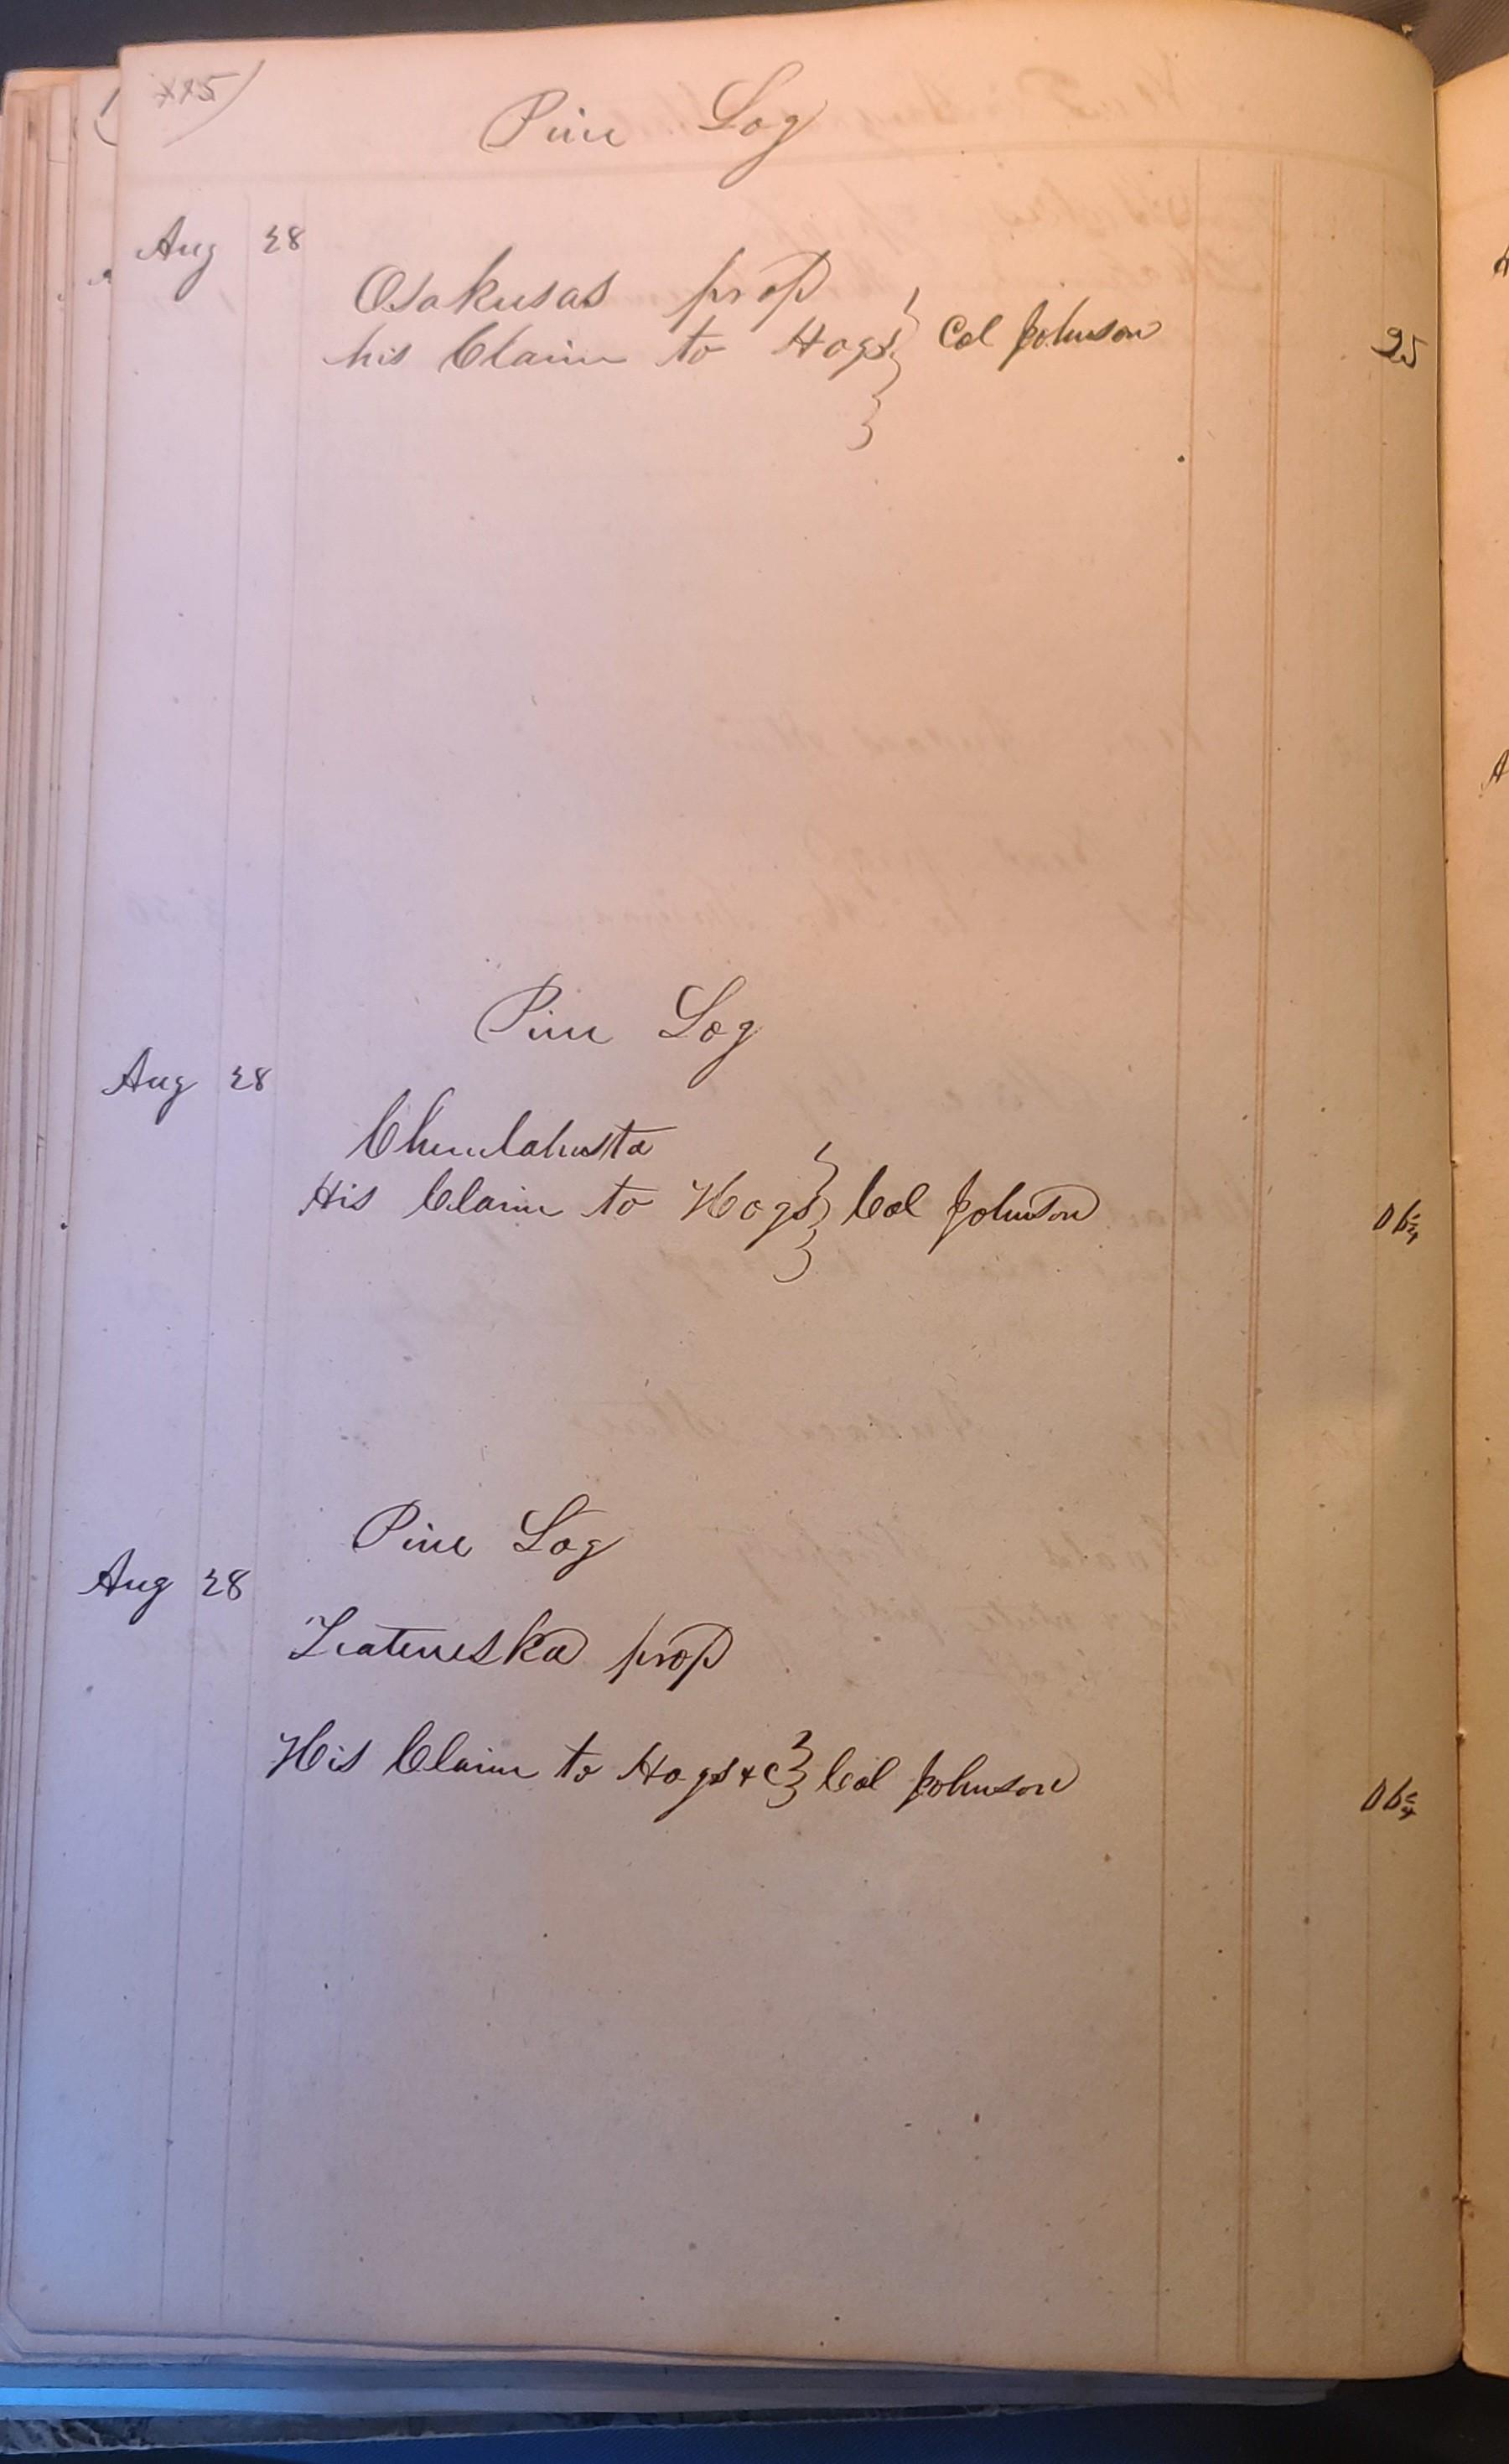 Pine Log
Aug 28
Osakusas prop
his Claim to Hogs } Col Johnson 25
Pine Log
Aug 28
Chuulahusta
His Claim to Hogs } Col Johnson 06¼
Pine Log
Aug 28
prop
His Claim to Hogs &c } Col Johnson 06¼